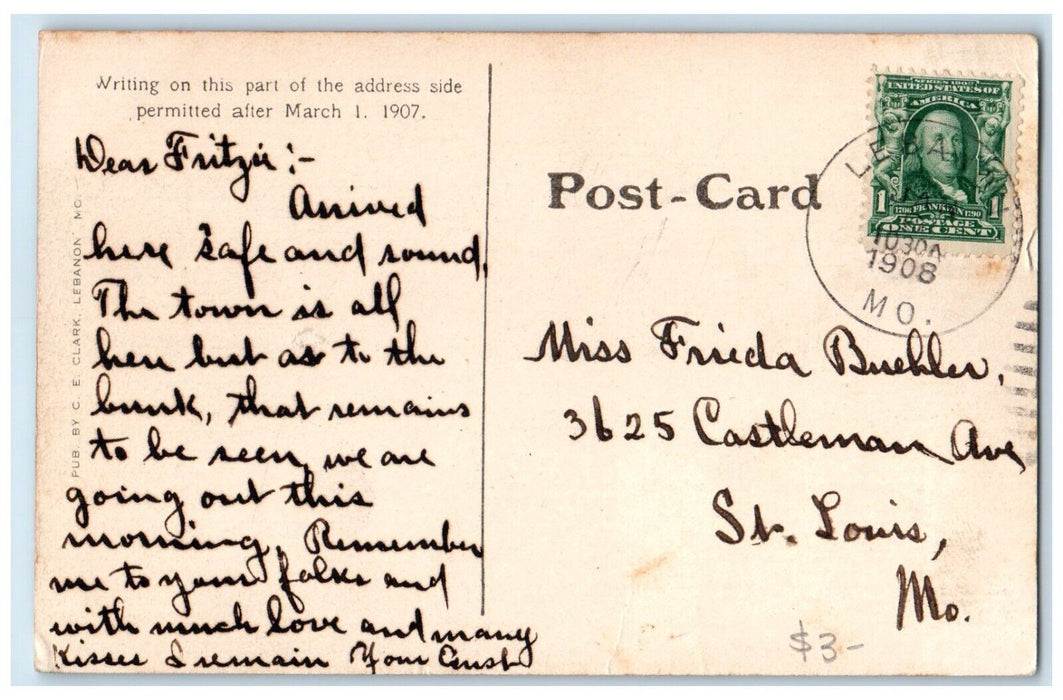 Writing on this part of the address side
permitted after March 1. 1907.
Dear Fritzie:-
Arrived
here safe and sound.
The town is all
here but as to the
bunk, that remains
to be seen, we are
going out this
morning. Remember
me to your folks and
with much love and many
Kisses I remain Your
PUB. BY C. E. CLARK, LEBANON MO.
Post-Card
SERIES 1902
UNITED STATES OF
AMERICA
1706 FRANKLIN 1790
1 1
POSTAGE
ONE CENT
LEBANON
1030A
1908
MO.
Miss Frieda Buehler,
3625 Castleman Ave
St. Louis,
Mo.
$3-